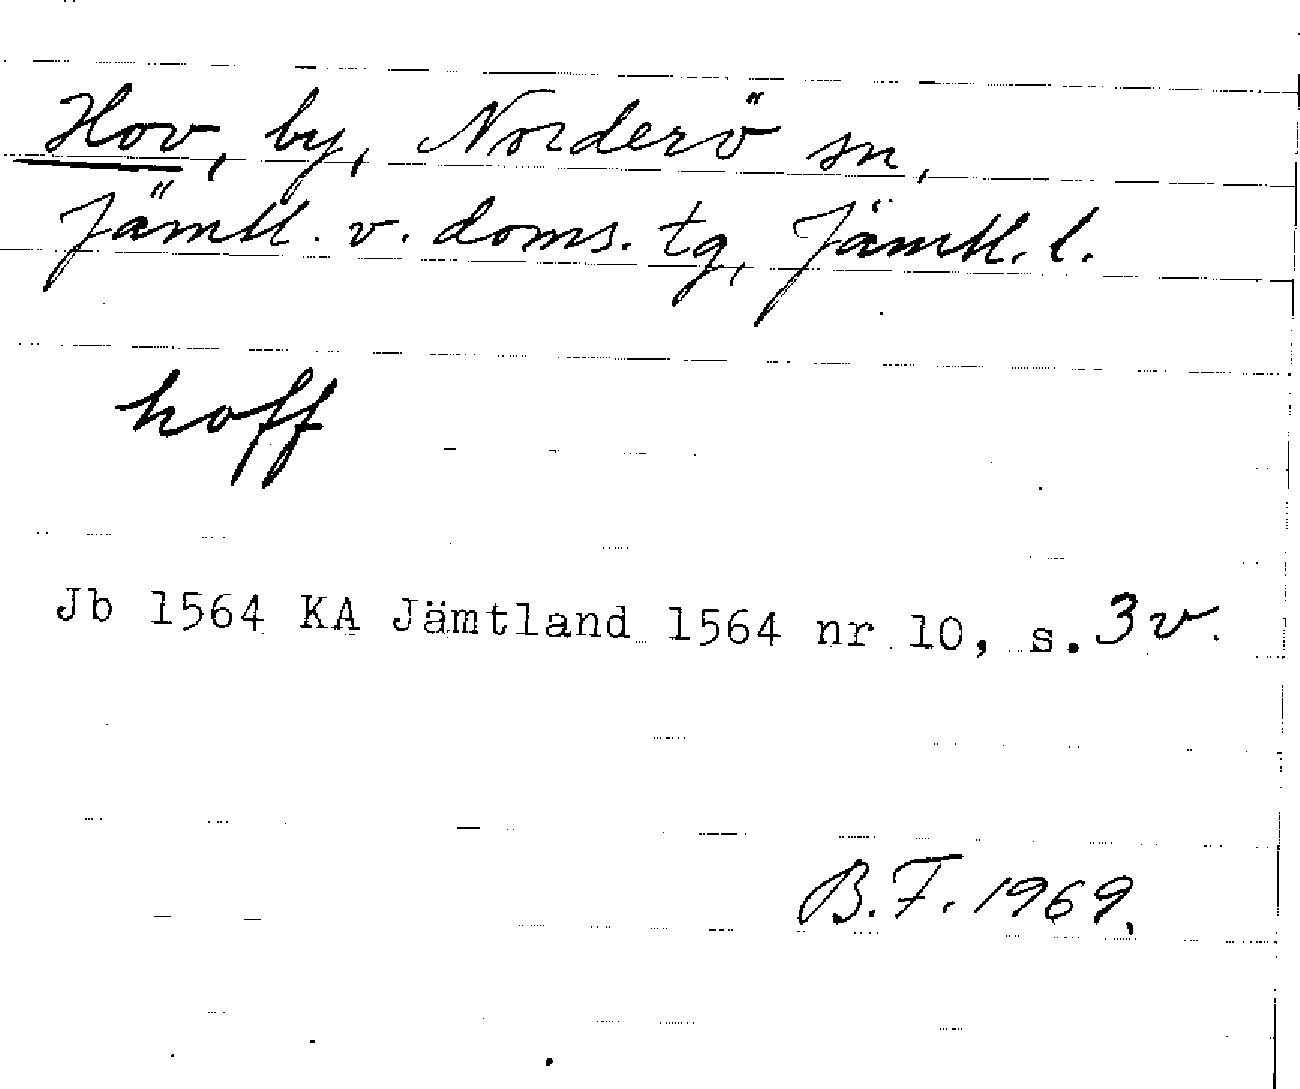 Hov, by, Norderö sn,
Jämtl. v. doms. tg, Jämtl. l.
hoff
Jb 1564 KA Jämtland 1564 nr 10, s. 3 v.
B. F. 1969.